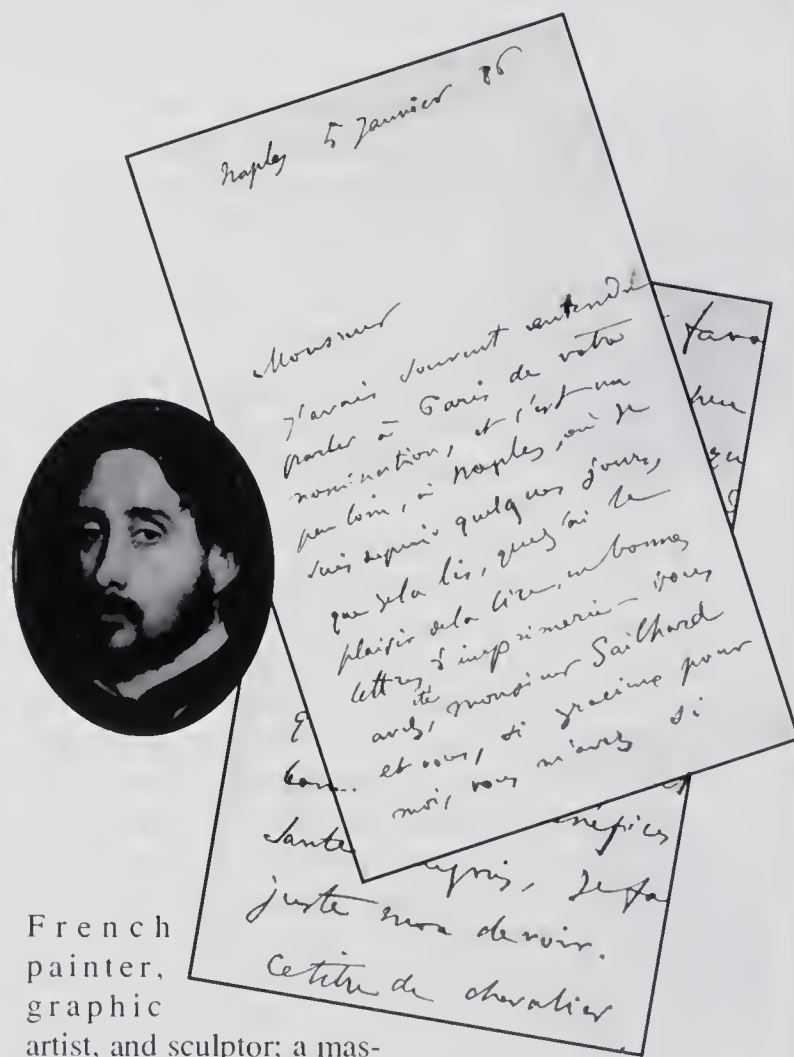 Naples 5 Janvier 86
Monsieur
J'avais souvent entendu
parler à Paris de votre
nomination, et c'est un
peu loin, à Naples, où je
suis depuis quelques jours,
que je la lis, que j'ai le
plaisir de la lire, en bonnes
lettres d'imprimerie — vous
avez été, monsieur Gailhard
et vous, si gracieux pour
moi, vous m'avez si
néfices
juste mon devoir.
Ce titre de chevalier
French
painter,
graphic
artist, and sculptor; a mas-